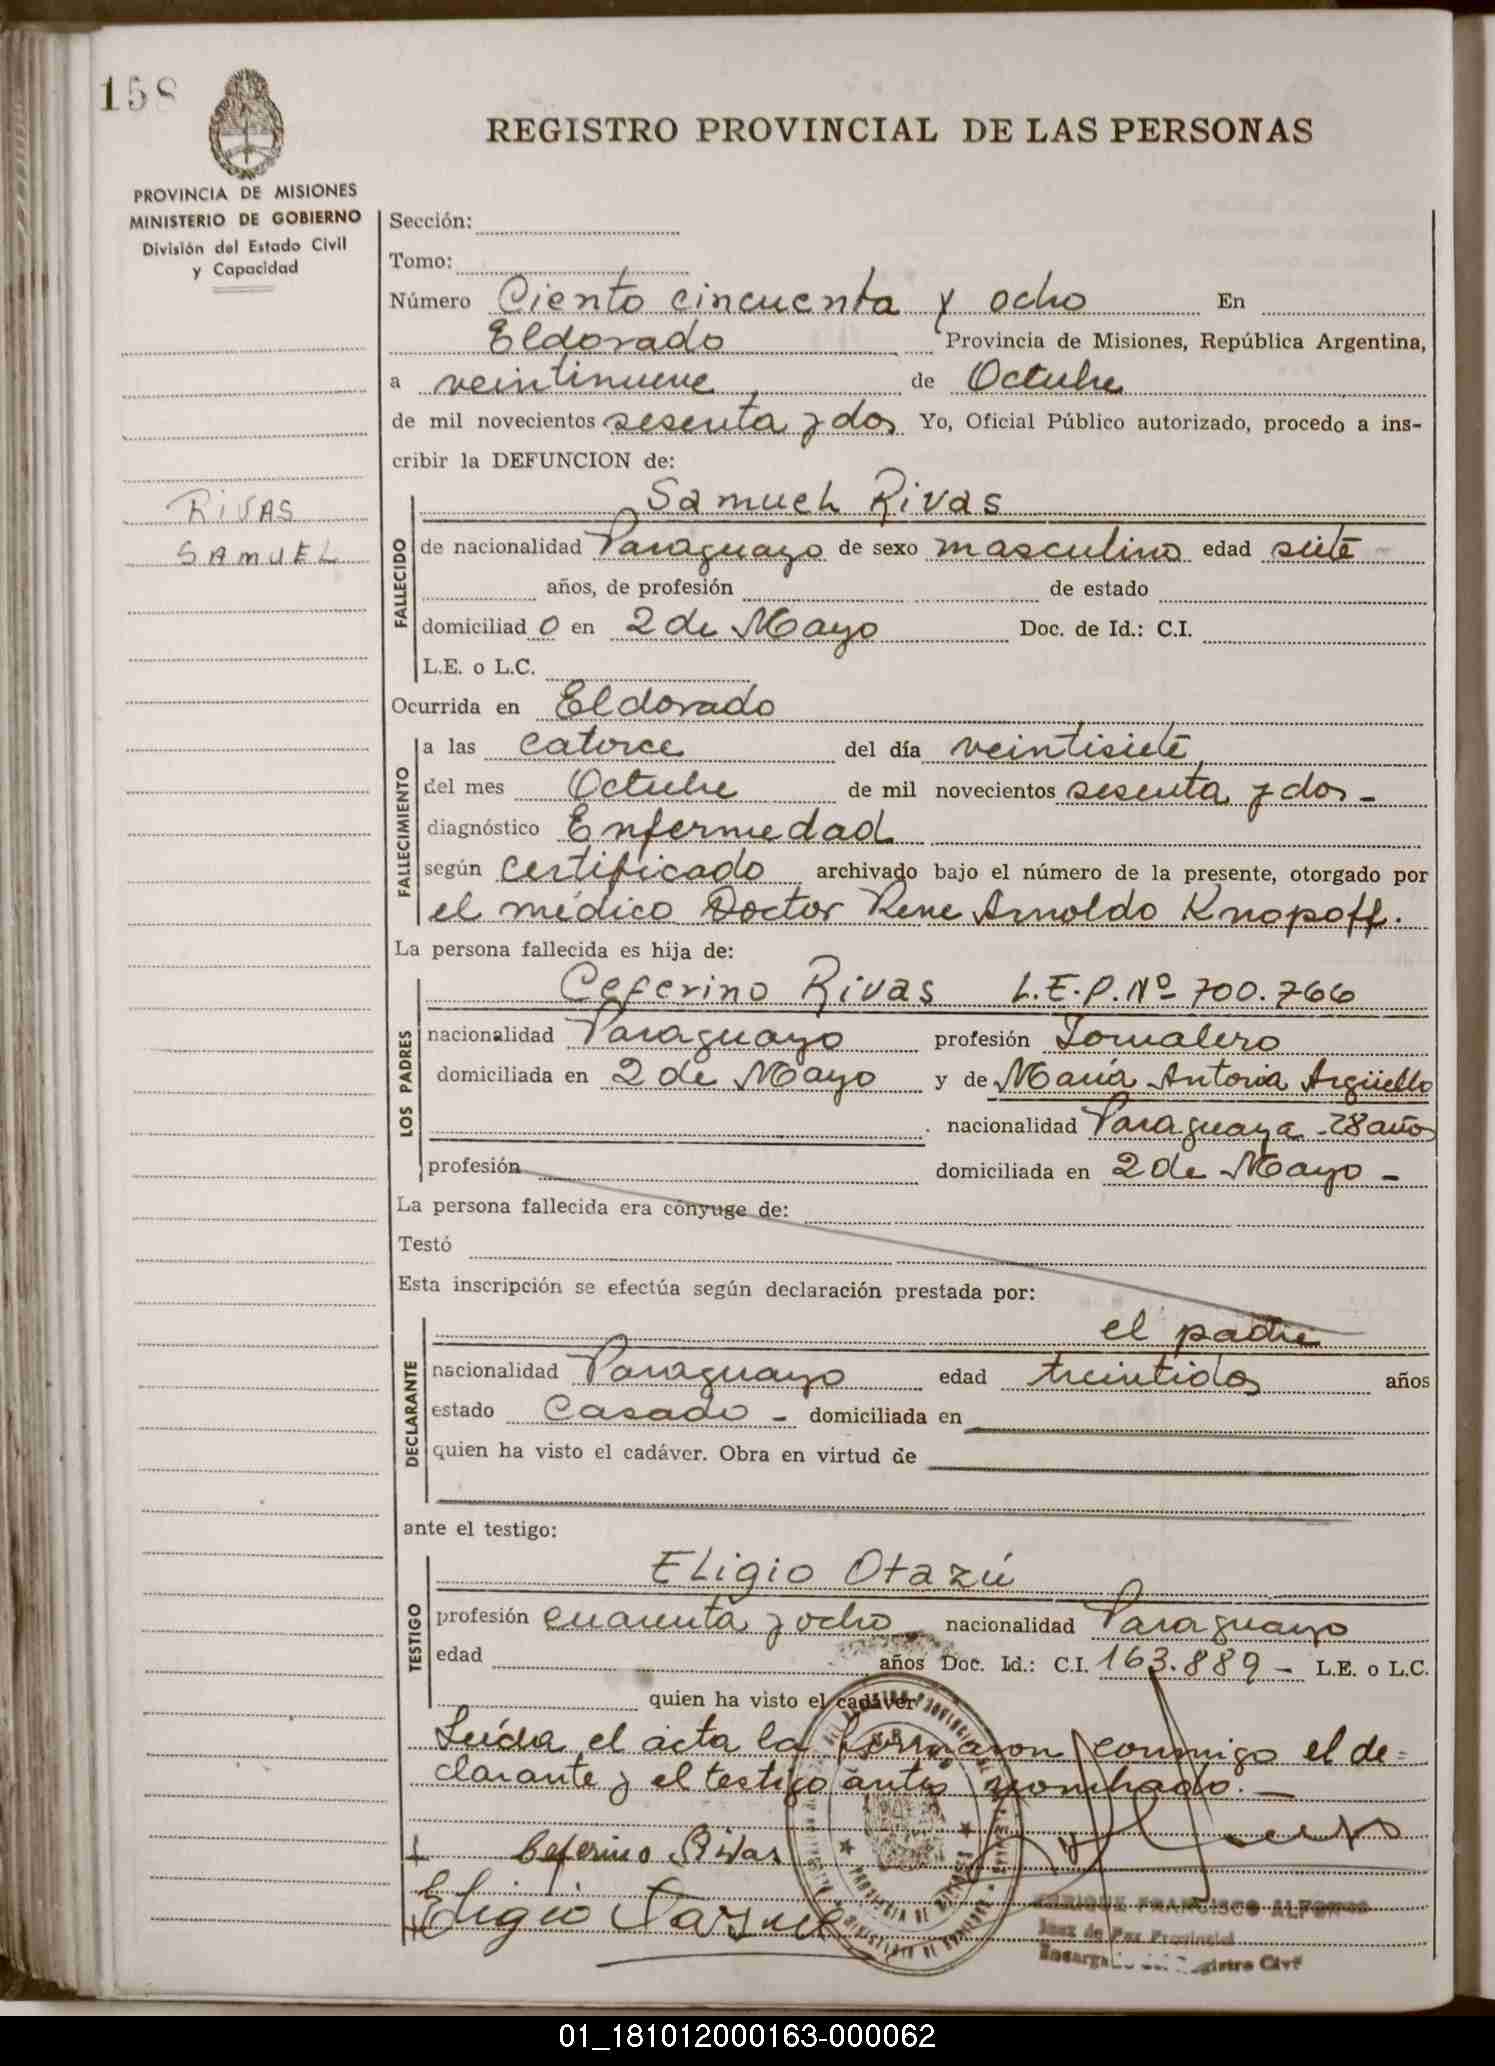 158
REGISTRO PROVINCIAL DE LAS PERSONAS
PROVINCIA DE MISIONES
MINISTERIO DE GOBIERNO
División del Estado Civil
y Capacidad
Sección:
Tomo:
Número Ciento cincuenta y ocho En
Eldorado Provincia de Misiones, República Argentina,
a veintinueve de Octubre
de mil novecientos sesenta y dos Yo, Oficial Público autorizado, procedo a ins-
cribir la DEFUNCION de:
RIVAS
SAMUEL
FALLECIDO
Samuel Rivas
de nacionalidad Paraguayo de sexo masculino edad siete
años, de profesión de estado
domiciliad o en 2 de Mayo Doc. de Id.: C.I.
L.E. o L.C.
Ocurrida en Eldorado
FALLECIMIENTO
a las catorce del día veintisiete
del mes Octubre de mil novecientos sesenta y dos -
diagnóstico Enfermedad
según certificado archivado bajo el número de la presente, otorgado por
el médico Doctor Rene Arnoldo Knopoff.
La persona fallecida es hija de:
LOS PADRES
Ceferino Rivas L.E.P. Nº 700.766
nacionalidad Paraguayo profesión Jornalero
domiciliada en 2 de Mayo y de María Antonia Argüello
nacionalidad Paraguaya 28 años
profesión domiciliada en 2 de Mayo -
La persona fallecida era cónyuge de:
Testó
Esta inscripción se efectúa según declaración prestada por:
DECLARANTE
el padre
nacionalidad Paraguayo edad treintidos años
estado Casado - domiciliada en
quien ha visto el cadáver. Obra en virtud de
ante el testigo:
TESTIGO
Eligio Otazú
profesión cuarenta y ocho nacionalidad Paraguayo
edad años Doc. Id.: C.I. 163.889 - L.E. o L.C.
quien ha visto el cadáver
Leída el acta la firmaron conmigo el de=
clarante y el testigo antes nombrado. -
Ceferino Rivas
Eligio
ENRIQUE FRANCISCO ALFONSO
Juez de Paz Provincial
01_181012000163-000062